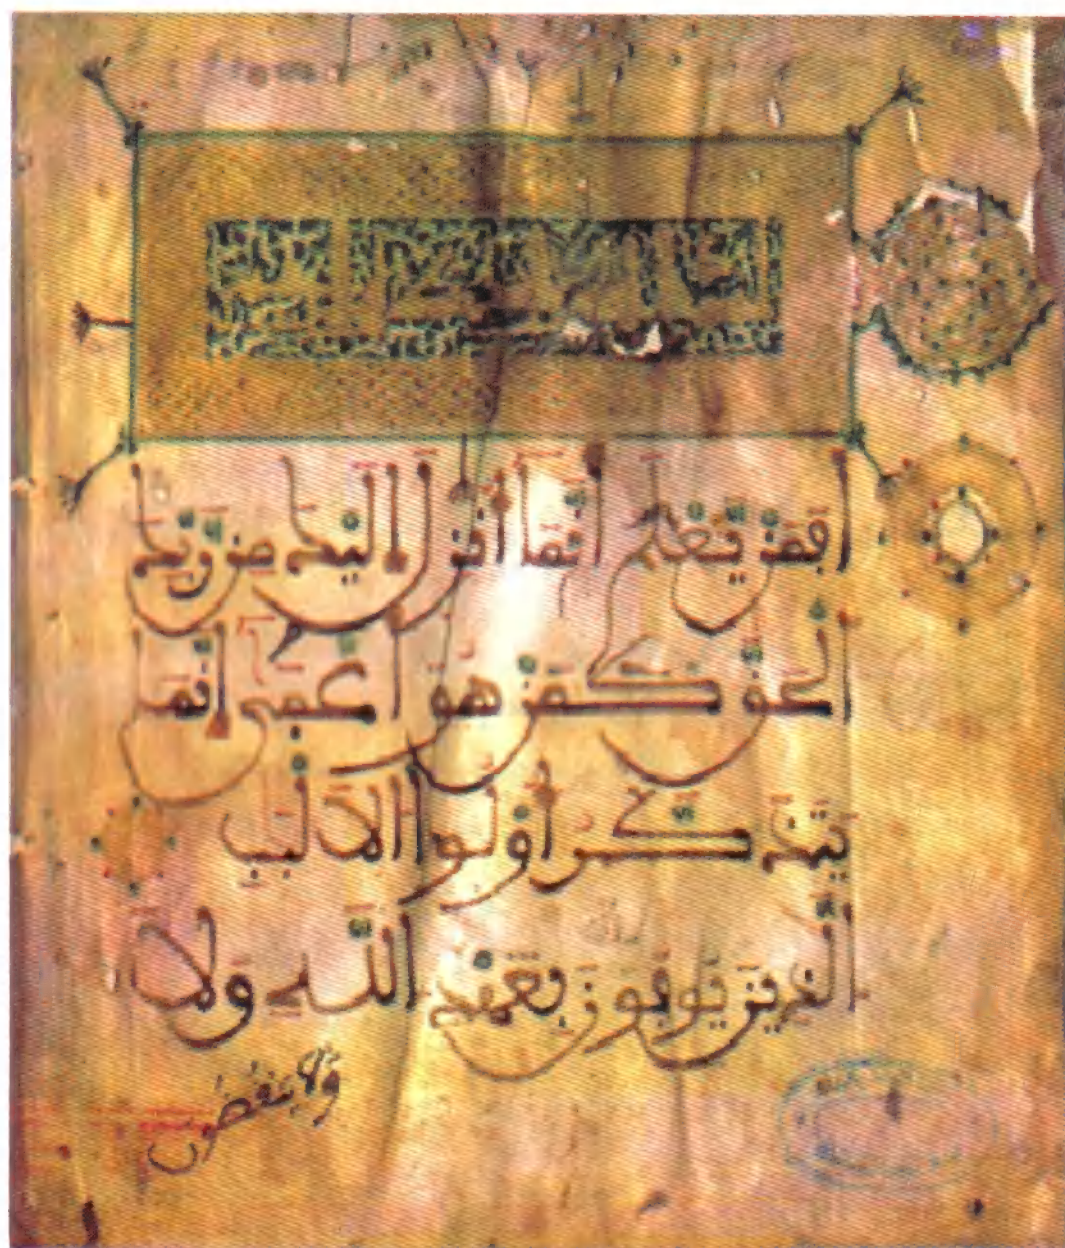 أَفَمَن يَعْلَمُ أَنَّمَا أُنزِلَ إِلَيْكَ مِن رَّبِّكَ
الْحَقُّ كَمَنْ هُوَ أَعْمَىٰ إِنَّمَا
يَتَذَكَّرُ أُوْلُوا الْأَلْبَبِ
الَّذِينَ يُوفُونَ بِعَهْدِ اللَّهِ وَلَا
ولا ينقضون